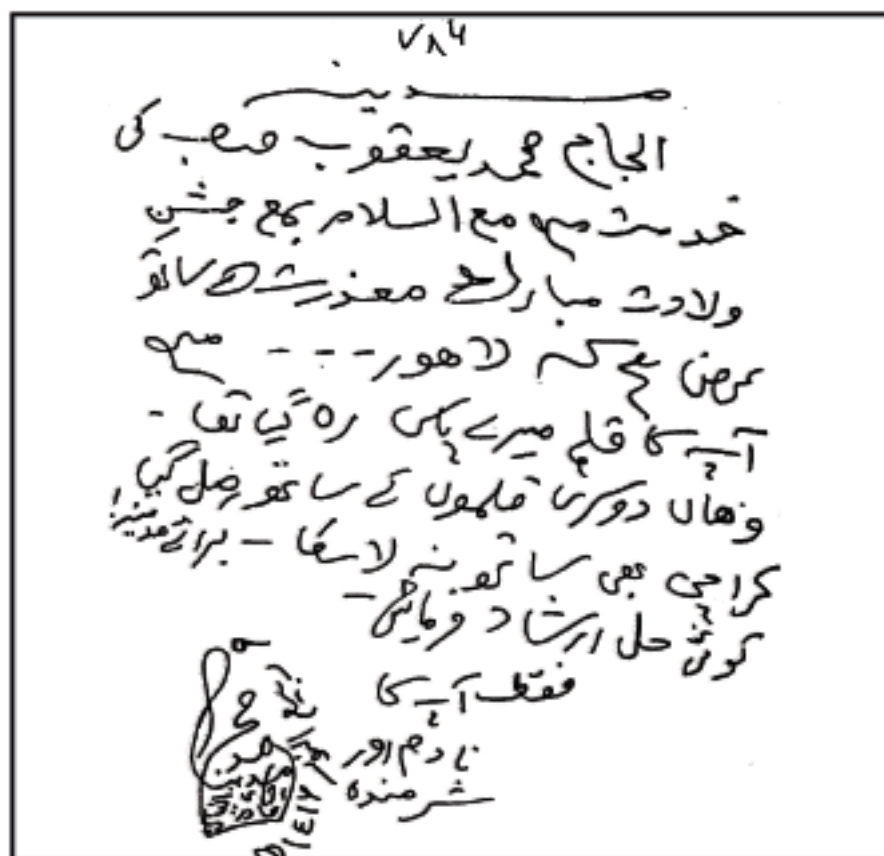 ٧٨٦
مدینہ
الحاج محمد یعقوب صاحب کی
خدمت میں مع السلام بمع جشنِ
ولادت مبارک معذرت کے ساتھ
عرض ہے کہ لاھور --- میں
آپ کا قلم میرے پاس رہ گیا تھا -
وھاں دوسری قلموں کے ساتھ مل گیا
کراچی بھی ساتھ نہ لاسکا - برائے مدینہ!
کوئی حل ارشاد فرمائیں -
فقط آپ کا
نادم اور
شرمندہ
١٤١٧ھ